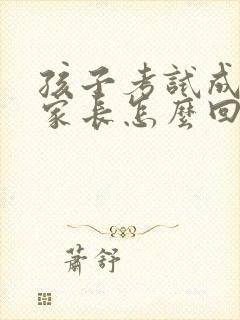 孩子考試成
家長怎麼回
蕭舒